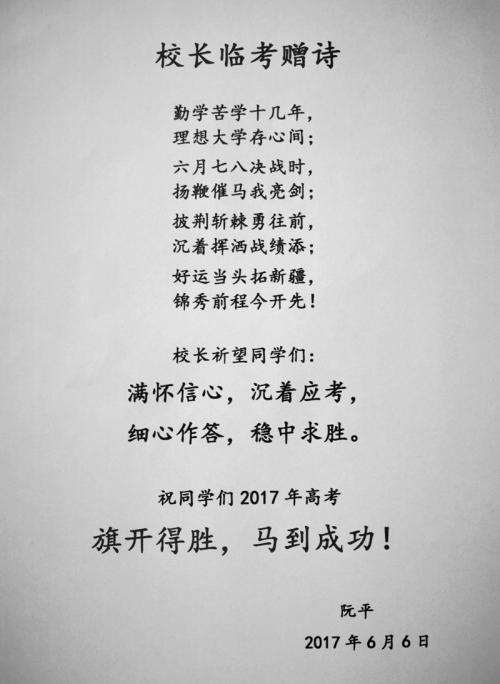 校长临考赠诗
勤学苦学十几年，
理想大学存心间；
六月七八决战时，
扬鞭催马我亮剑；
披荆斩棘勇往前，
沉着挥洒战绩添；
好运当头拓新疆，
锦秀前程今开先！
校长祈望同学们：
满怀信心，沉着应考，
细心作答，稳中求胜。
祝同学们2017年高考
旗开得胜，马到成功！
阮平
2017年6月6日